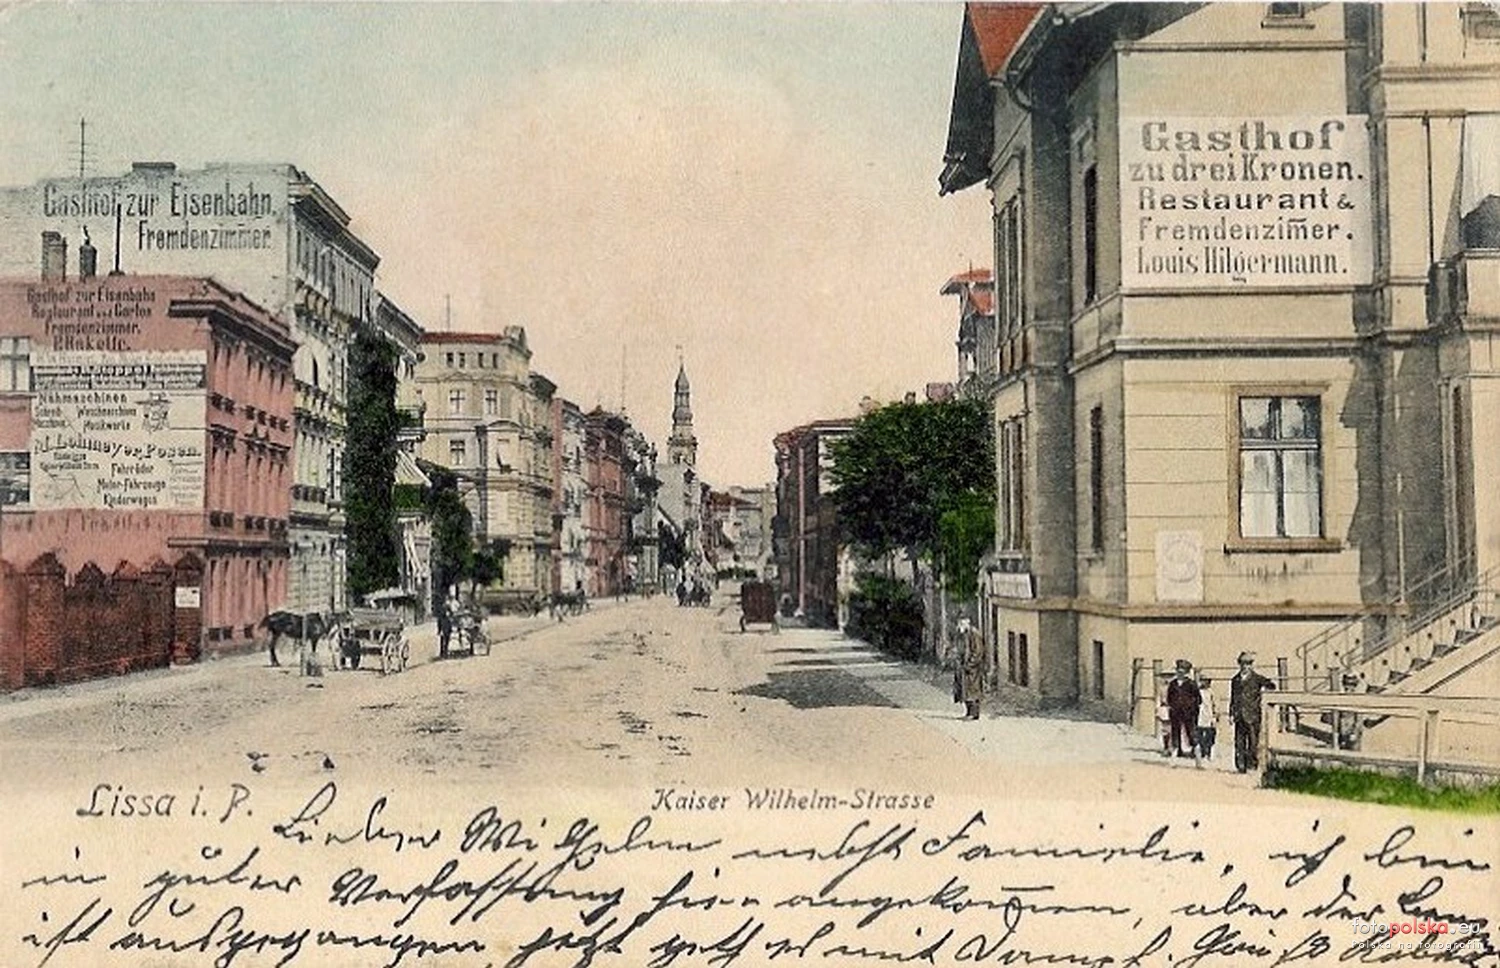 Gasthof zur Eisenbahn.
Fremdenzimmer.
Gasthof zur Eisenbahn
Restaurant und Garten
Fremdenzimmer.
Nähmaschinen
Waschmaschinen
Musikwerke
M. Lohmeyer, Posen.
Fahrräder
Motor-Fahrzeuge
Kinderwagen
Gasthof
zu drei Kronen.
Restaurant &
Fremdenzim̄er.
Louis Hilgermann.
Lissa i. P.
Kaiser Wilhelm-Strasse
Lieber Wilhelm nebst Familie, ich bin
in guter Verfassung hier angekom̄en, aber der
ist ausgegangen, jetzt geht es mit Dampf.
fotopolska.eu
Polska na fotografii